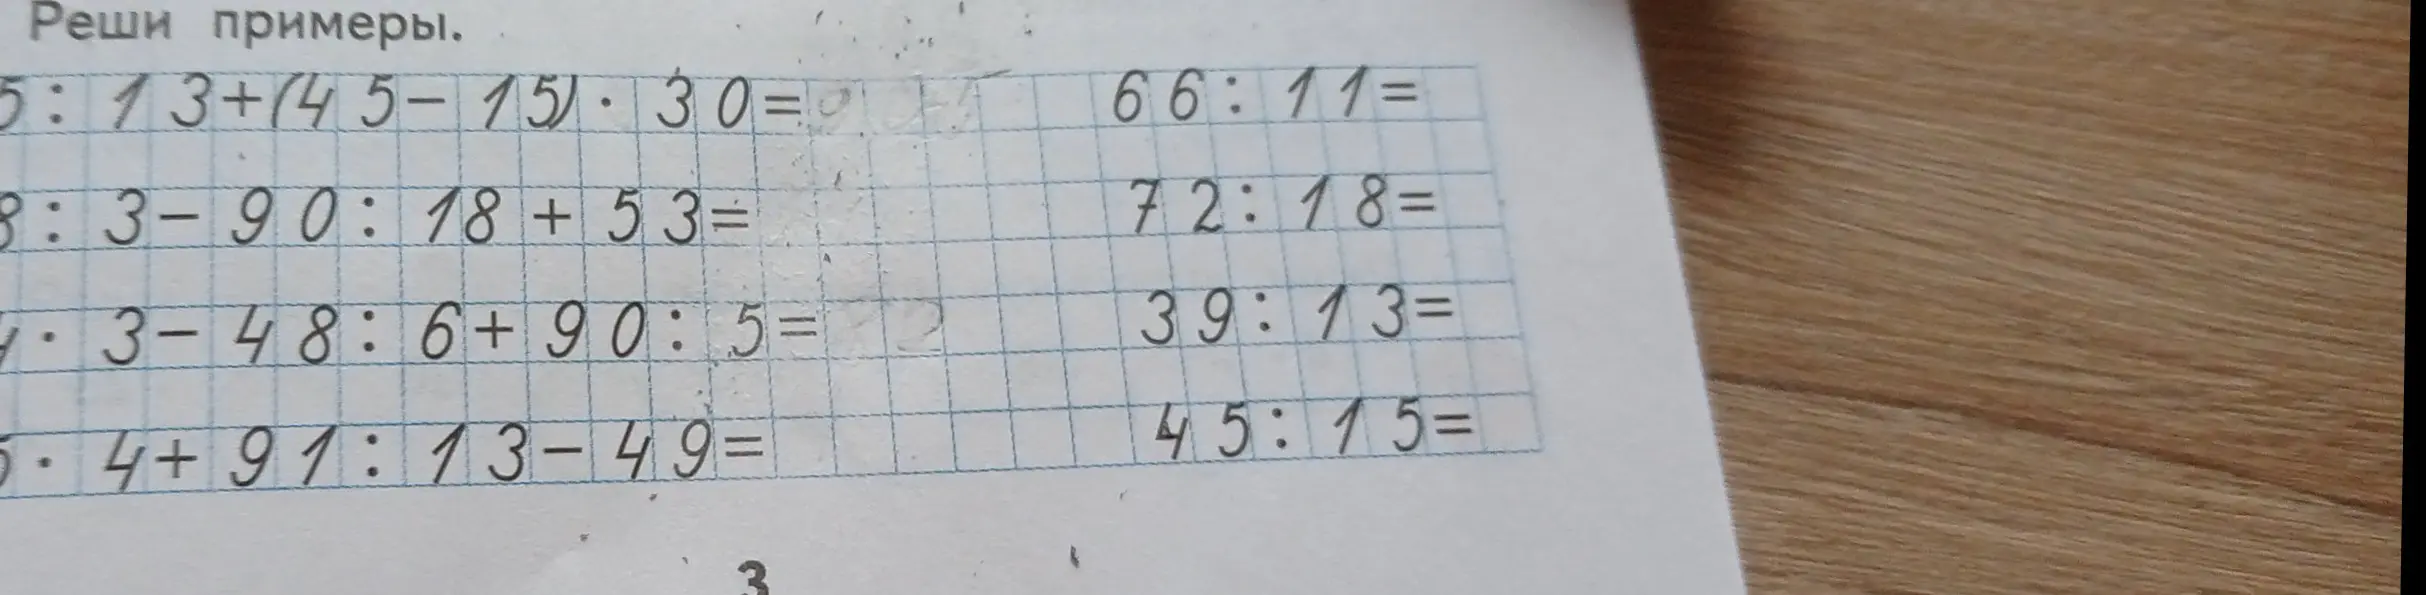 Реши примеры.
5 : 13 + (45 − 15) · 30 =
66 : 11 =
8 : 3 − 90 : 18 + 53 =
72 : 18 =
· 3 − 48 : 6 + 90 : 5 =
39 : 13 =
· 4 + 91 : 13 − 49 =
45 : 15 =
3